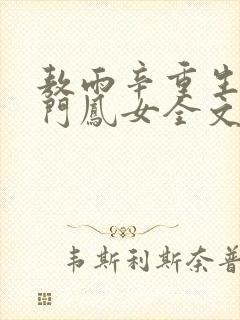 敖雨辛重生
门凤女全文
韦斯利斯奈普